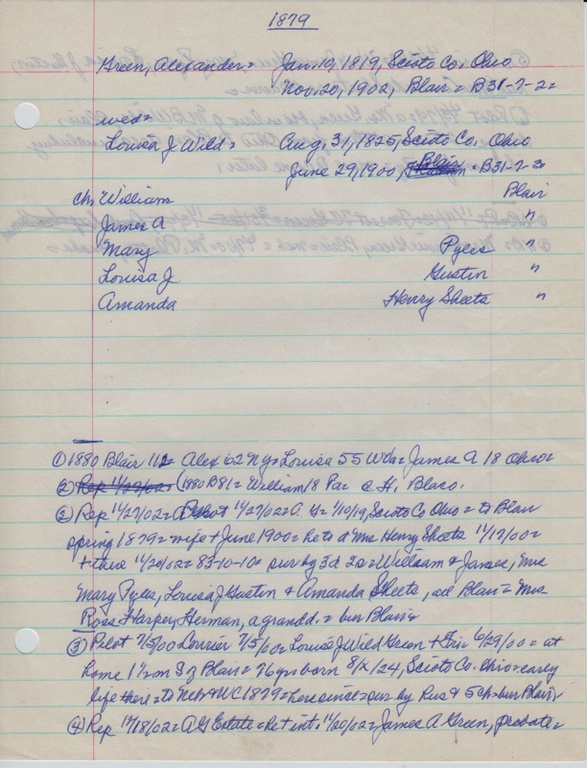 1879
Green, Alexander = Jan. 10, 1819, Scioto Co. Ohio
Nov. 20, 1902, Blair = B31-7-2=
wed =
Louisa J Wild = Aug. 31, 1825, Scioto Co. Ohio
June 29, 1900, Blair = B31-7-2=
ch. William Blair
James A "
Mary Pyles "
Louisa J Gustin "
Amanda Henry Sheets "
① 1880 Blair 112 = Alex 62 N Y = Louisa 55 W Va = James A 18 Ohio =
② Rep 11/27/02 = (1880 B81 = William 18 Pa = C H. Blaco.
② Rep 11/27/02 = Pilot 11/27/02 = A. G = 1/10/19, Scioto Co Ohio = to Blair
spring 1879 = wife + June 1900 = he to d Mrs Henry Sheets 11/17/00 =
+ there 11/20/02 = 83-10-10 = sur by 3d 2s = William & James, Mrs
Mary Pyles, Louisa J Gustin & Amanda Sheets, all Blair = Mrs
Rose Harper, Herman, a grandd. = bur Blair =
③ Pilot 7/5/00 Courier 7/5/00 = Louisa J Wild Green + Fri 6/29/00 = at
home 1 1/2 m S of Blair = 76 yrs born 8/x/24, Scioto Co. Ohio = early
life there = to Neb & WC 1879 = here since = sur by hus & 5 ch = bur Blair =
④ Rep 12/18/02 = A G Estate = Pet int. 11/20/02 = James A Green, probate =